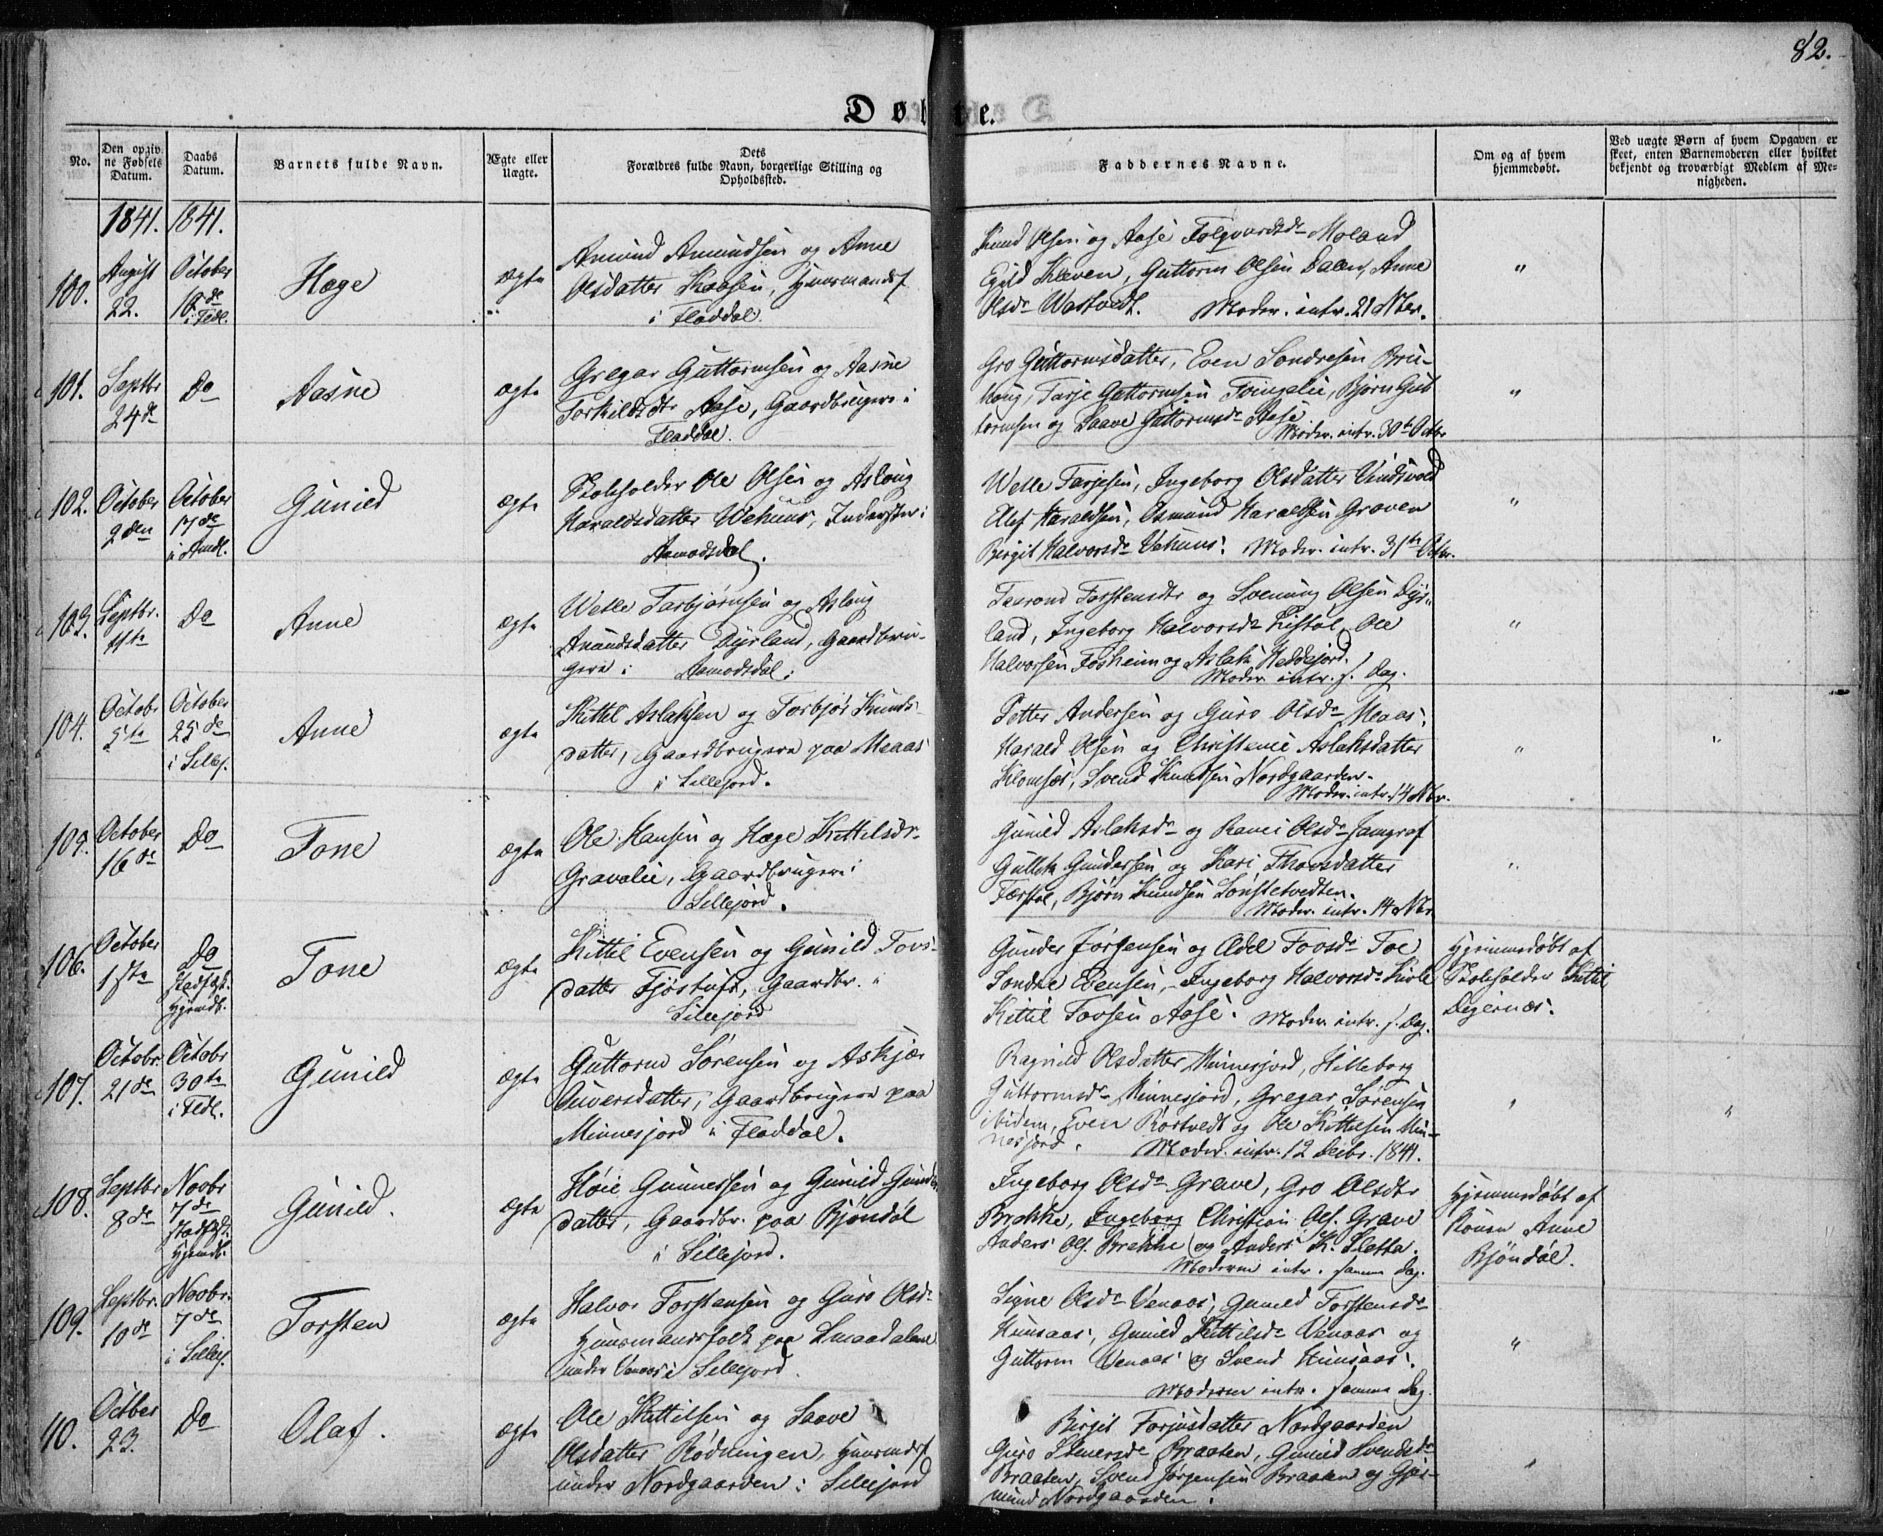 82.
Døbte.
No.
Den opgiv-
ne Fødsels
Datum.
Daabs
Datum.
Barnets fulde Navn.
Ægte eller
Uægte.
Dets
Forældres fulde Navn, borgerlige Stilling og
Opholdssted.
Faddernes Navne.
Om og af hvem
hjemmedøbt.
Ved uægte Børn af hvem Opgaven er
skeet, enten Barnemoderen eller hvilket
bekjendt og troværdigt Medlem af Me-
nigheden.
1841. 1841.
100.
August
22.
October
10de
i Fldl.
Hæge
ægte
Amund Amundsen og Anne
Olsdatter Husmandsf
i Fladdal.
Knud Olsen og Aase Folqvardsdr Moland
Egild Kleven, Guttorm Olsen Dalen, Anne
Olsdr Wastvedt. Moder. intr. 21 Nbr.
"
101.
Septbr
24de
Do
Aasne
ægte
Gregar Guttormsen og Aasne
Torkildsdtr Aase, Gaardbrugere i
Fladdal.
Gro Guttormsdatter, Even Sondresen Bru-
Tarje Guttormsen Tvingelie, Bjørn Gut
tormsen og Saave Guttormsdr Aase
Moder. intr. 30te Octbr
"
102.
October
2den
October
17de
i Amdl.
Gunild
ægte
Skoleholder Ole Olsen og Aslaug
Haraldsdatter Wehuus, Inderster i
Aamodsdal.
Wetle Tarjesen, Ingeborg Olsdatter Vindsvold
Olef Haraldsen, Osmund Haraldsen Graven
Birgit Halvorsdr Vehuus. Moder. intr. 31te Octbr.
"
103.
Septbr.
11te
Do
Anne
ægte
Wetle Tarbjørnsen og Aslaug
Anundsdatter Dyrland, Gaardbru-
gere i Aamodsdal.
Taarond Torstensdtr og Svenung Olsen Dyr-
land, Ingeborg Halvorsdr Ole
Halvorsen Fosheim og Aslak Heddejord.
Moder intr. s. Dag.
"
104.
Octobr
5te
October
25de
i Sillej.
Anne
ægte
Kittel Aslaksen og Torbjør Knuds-
datter, Gaardbrugere paa Meaas
i Sillejord.
Petter Andersen og Guro Olsdr Meaas.
Harald Olsen og Christence Aslaksdatter
Svend Knudsen Nordgaarden.
Moder. intr. 14 Nbr.
"
"
105.
October
16de
Do
Tone
ægte
Ole Hansen og Hæge Kittelsdr
Gravalie, Gaardbrugere i
Sillejord.
Gunild Aslaksdr og Ranei Olsdr Jamgraf
Gullik Gundersen og Kari Thovsdatter
Bjørn Knudsen
Moder. intr. 14 Nbr.
"
106.
October
1ste
Do
Stadfæst.
Hjemdb.
Tone
ægte
Kittil Evensen og Gunild Tovs-
datter Tjostuft, Gaardbr. "
Sillejord
Gunder Jørgensen og Edel Tovsdr Toe
Sondre Evensen, Ingeborg Halvorsdr
Kittil Tovsen Aase. Moder. intr. s. Dag.
Hjemmedøbt af
Skoleholder Kittil
Digernæs.
107.
Octobr.
21de
Octobr
30te
i Fldl.
Gunild
ægte
Guttorm Sørensen og Askjær
Gunversdatter, Gaardbrugere paa
Minnesjord i Fladdal.
Ragnild Olsdatter Minnesjord, Hilleborg
Guttormsdr Minnesjord, Gregar Sørensen
ibidem, Even Rortvedt og Ole Kittilsen Min-
nesjord. Moder. intr. 12 Decbr. 1841.
"
"
108.
Septbr
8de
Novbr
7de
Stadfæst.
Hjemdb.
Gunild.
ægte
Høie Gunnersen og Gunild Gunder-
datter, Gaardbr. paa Bjøndøl
i Sillejord.
Ingeborg Olsdr Grave, Gro Olsdtr
Brekke, Ingeborg Christian Ols. Grave
Anders Ols. Brekke og Anders K. Sletta.
Moderen intr. samme Dag.
Hjemmedøbt af
Konen Anne
Bjøndøl.
109.
Septbr.
10de
Novbr.
7de
i Sillej.
Torsten
ægte
Halvor Torstensen og Guro Olsdr
Huusmandsfolk paa Smaadalene
under Venaas i Sillejord.
Signe Olsdr Venaas, Gunild Torstensdr
Huusaas, Gunild Kittilsdr Venaas og
Guttorm Venaas og Svend Huusaas.
Moderen intr. samme Dag.
"
110.
Octber
23.
Do
Olaf.
ægte
Ole Kittilsen og Saave
Olsdatter Rødningen, Huusmdsf
under Nordgaarden i Sillejord
Birgit Torjusdatter Nordgaarden
Guro Stenersdr Braaten, Gunild Svendsdr
Braaten, Svend Jørgensen Braaten og Gjer-
mund Nordgaarden.
"